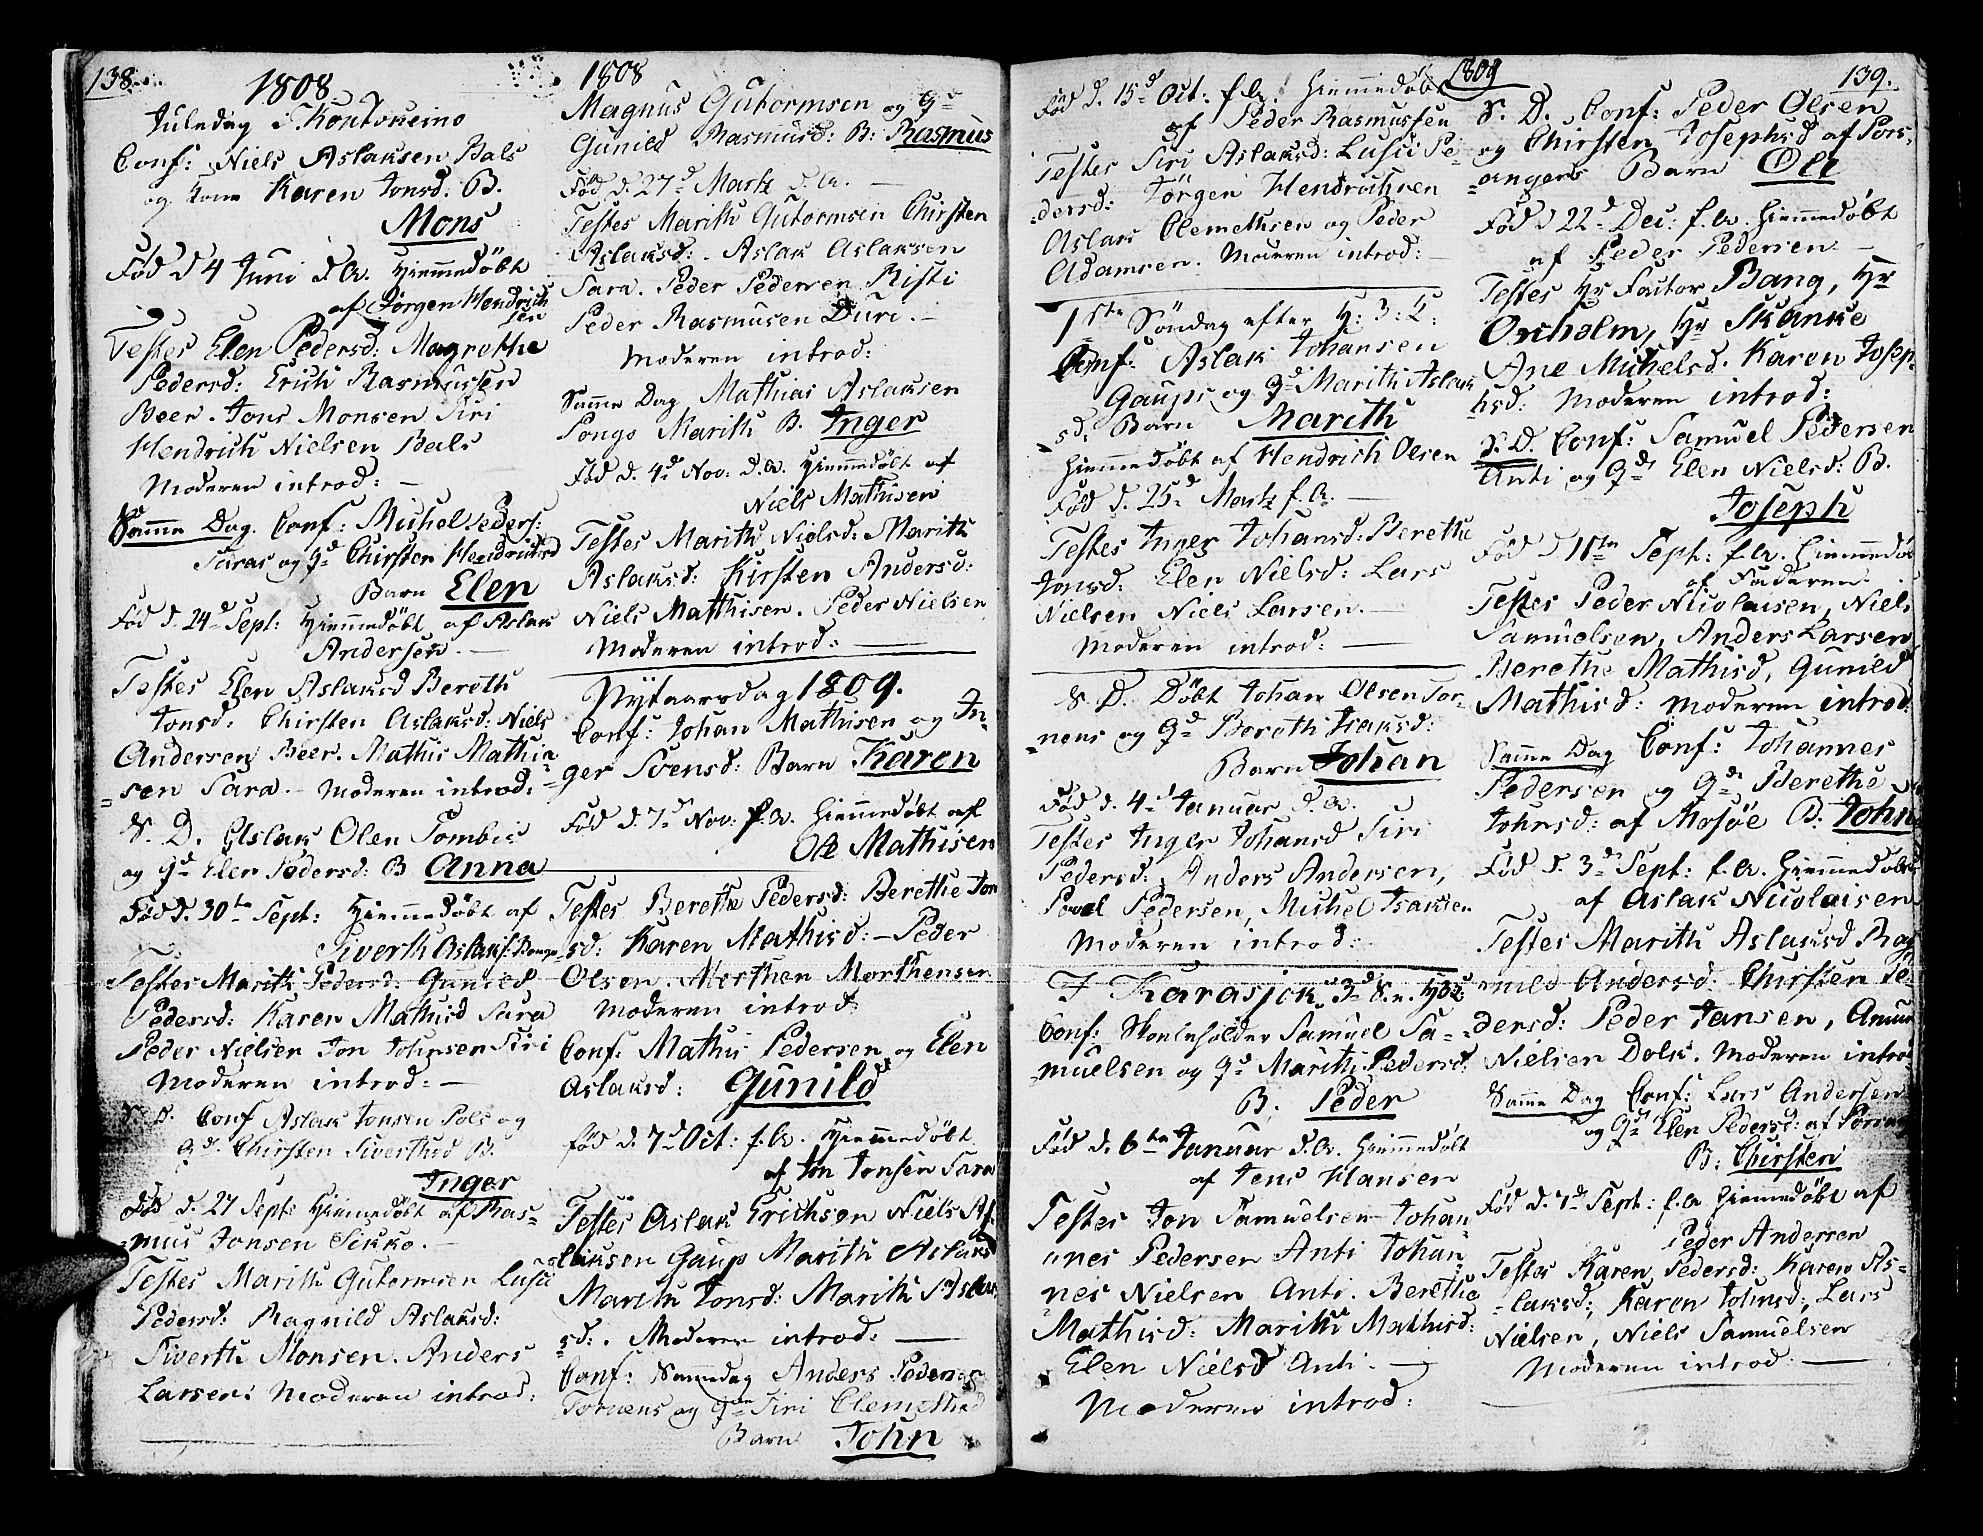 138.
1808
Juledag i Koutokeino
Conf: Niels Aslaksen Bals
og Kone Karen Jonsd: B.
Mons
Fød d 4 Juni d.A. Hiemmedøbt
af Jørgen Hendrich
sen
Testes Elen Pedersd: Magrethe
Pedersd: Erich Rasmussen
Beer. Jons Monsen Siri
Hendrich Nielsen Bals
Moderen introd: —
Samme Dag. Conf: Michel Peders:
Saras og Qd Chirsten Hendrichsd
Barn Elen
Fød d. 24d Sept: Hiemmedøbt af Aslak
Andersen. —
Testes Elen Aslaksd Bereth
Jonsd: Chirsten Aslaksd: Niels
Andersen Beer. Mathis Mathia=
=sen Sara. — Moderen introd:
S. D. Eslak Olen Tombis
og Qd Elen Pedersd: B Anna
Fød d. 30te Sept: Hiemmedøbt af
Siverth Aslaks: Bongo
Testes Marith Pedersd: Gunild
Pedersd: Karen Mathisd Sara
Peder Nielsen Jon Johnsen Siri
Moderen introd: —
S. D. Conf Aslak Jonsen Pols og
Qd. Chirsten Siverthsd B.
Inger
Fød d. 27 Sept: Hiemmedøbt af Ras=
=mus Jonsen Sikko. —
Testes Marith Gutormsen Lusie
Pedersd: Ragnild Aslaksd:
Siverth Monsen. Anders
Larsen. Moderen introd:
1808
Magnus Gutormsen og Qd
Gunild Rasmusd: B: Rasmus
Fød d. 27d Martz d.A. —
Testes Marith Gutormsen Chirsten
Aslaksd: . Aslak Aslaksen
Sara. Peder Pedersen Risti
Peder Rasmusen Duri. —
Moderen introd:
Samme Dag Mathias Aslaksen
Pongo Marith B. Inger
Fød d. 4de Nov: d.A. Hiemmedøbt af
Niels Mathisen
Testes Marith Nielsd: Marith
Aslaksd: Kirsten Andersd:
Niels Matthisen. Peder Nielsen
Moderen introd: —
Nytaarsdag 1809.
Conf: Johan Mathisen og In=
ger Svensd: Barn Karen
Fød d. 7d Nov: f.A. Hiemmedøbt af
Ole Mathisen
Testes Berethe Pedersd: Berethe Jon
sd: Karen Mathisd: — Peder
Olsen. Morthen Morthensen
Moderen introd:
Conf: Mathis Pedersen og Elen
Aslaksd: Gunild
fød d. 7d Oct: f.A. Hiemmedøbt
af Jon Jonsen Sara
Testes Aslak Erichsen Niels As=
laksen Gaup Marith Aslaksd
Marith Jonsd: Marith Aslak
sd: . Moderen introd: —
Conf: Sammedag Anders Pedersen
Tornens og Qde Siri Clemethsd
Barn John
1809
Fød d. 15d Oct: f.A. Hiemmedøbt
af Peder Rasmussen
Testes Siri Aslaksd: Lusci Pe=
=dersd: Jørgen Hendrichsen
Aslak Clemethsen og Peder
Adamsen. Moderen introd: —
1ste Søndag efter H: 3: K:
Conf: Aslak Johansen
Gaups og Qd Marith Aslak
sd: Barn Marith
Hiemmedøbt af Hendrich Olsen
Fød d. 25d Martz f.A. —
Testes Inger Johansd: Berethe
Jonsd: Elen Nielsd: Lars
Nielsen Niels Larsen. —
Moderen introd: —
S. D. Døbt Johan Olsen Tor=
=nens og Qd Bereth Isaksd:
Barn Johan
Fød d. 4d Januar d.A.
Testes Inger Johansd Siri
Pedersd: Anders Andersen,
Povel Pedersen, Michel Isaksen
Moderen introd:
I Karasjok 3d S. e. H3K:
Conf: Skoleholder Samuel Sa=
=muelsen og Qd Marith Pedersd:
B. Peder
Fød d. 6te Januar d.A. Hiemmedøbt
af Jens Hansen
Testes Jon Samuelsen Johan
=nes Pedersen Anti Johan=
nes Nielsen Anti. Berethe
Mathisd: Marith Mathisd:
Elen Nielsd Anti. —
Moderen introd:
139.
S. D. Conf: Peder Olsen
og Chirsten Josephsd af Pors=
=angers Barn Ole
Fød d 22d Dec: f.A. Hiemmedøbt
af Peder Pedersen —
Testes Hr Factor Bang, Hr
Oxholm, Hr Skanke
Ane Michelsd. Karen Josep=
hsd: Moderen introd:
S. D. Conf: Samuel Pedersen
Anti og Qde Elen Nielsd: B.
Joseph
Fød d 11te Sept: f.A. Hiemmedøbt
af Faderen.
Testes Peder Nicolaisen, Niels
Samuelsen, Anders Larsen
Berethe Mathisd, Gunild
Mathisd: Moderen introd:
Samme Dag Conf: Johannes
Pedersen og Qde Berethe
Johnsd: af Mosøe B. John
Fød d. 3de Sept: f.A. Hiemmedøbt
af Aslak Nicolaisen
Testes Marith Aslaksd Rag
=nild Andersd: Chirsten Pe=
dersd: Peder Jansen, Amun
Nielsen Dolk. Moderen introd
Samme Dag Conf: Lars Andersen
og Qde Elen Pedersd: af Porsang
B: Chirsten
Fød d. 7d Sept: f.A Hiemmedøbt af
Peder Andersen
Testes Karen Pedersd: Karen As=
=laksd; Karen Johnsd; Lars
Nielsen, Niels Samuelsen
Moderen introd: —